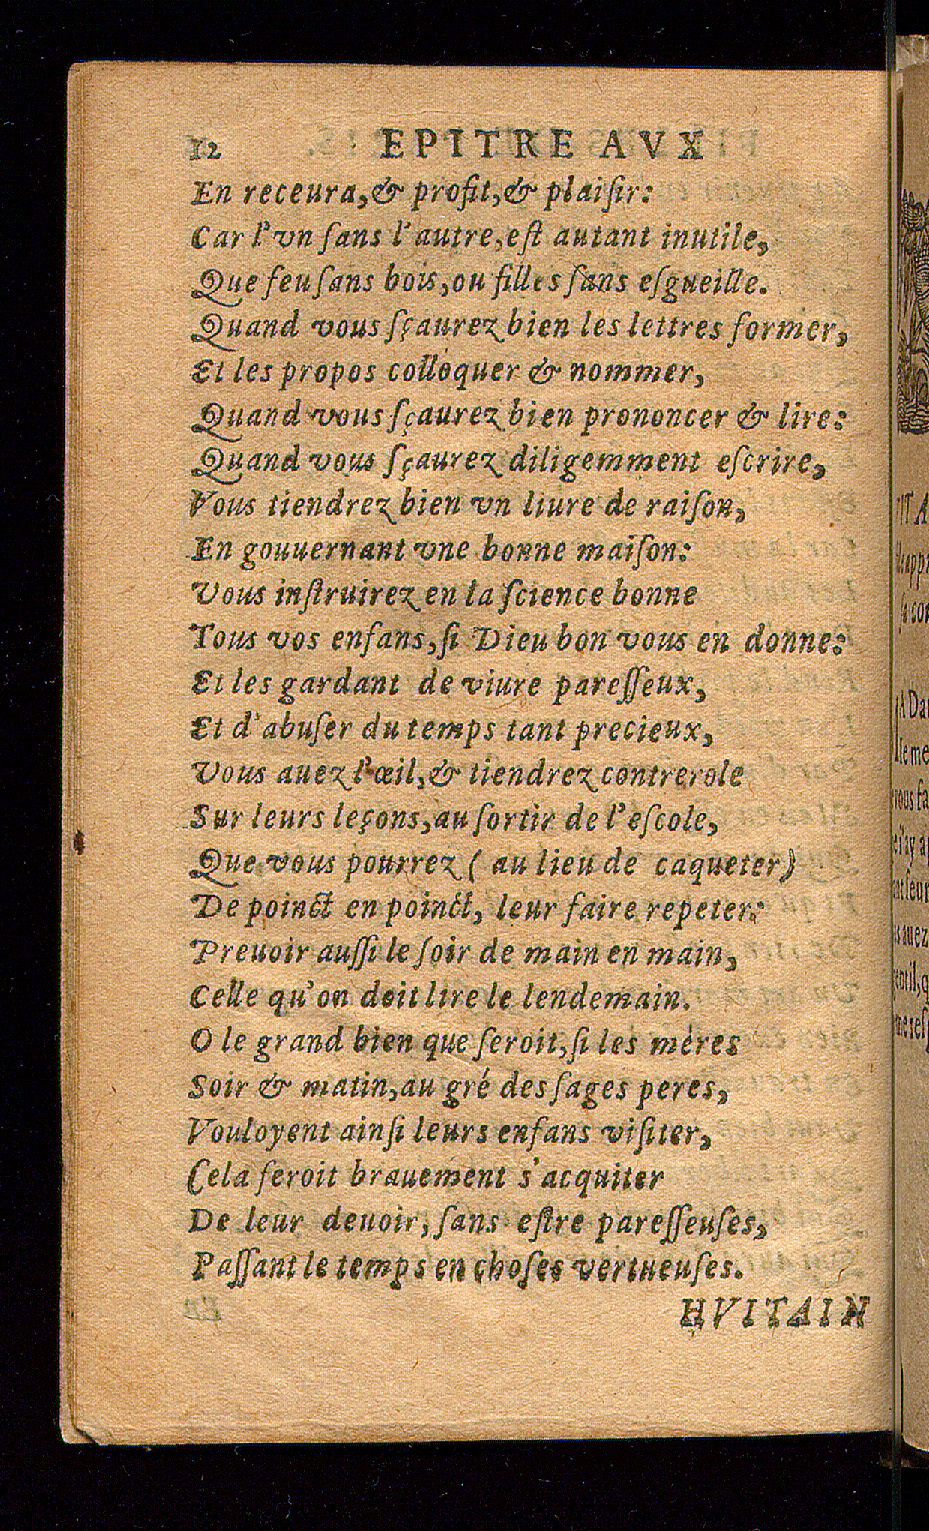 12 EPITRE AVX
En receura, & profit, & plaiſir:
Car l'vn ſans l'autre, eſt autant inutile,
Que feu ſans bois, ou filles ſans eſgueille.
Quand vous ſçaurez bien les lettres former,
Et les propos colloquer & nommer,
Quand vous ſçaurez bien prononcer & lire:
Quand vous ſçaurez diligemment eſcrire,
Vous tiendrez bien vn liure de raiſon,
En gouuernant vne bonne maiſon:
Vous inſtruirez en la ſcience bonne
Tous vos enfans, ſi Dieu bon vous en donne:
Et les gardant de viure pareſſeux,
Et d'abuſer du temps tant precieux,
Vous auez l'œil, & tiendrez contrerole
Sur leurs leçons, au ſortir de l'eſcole,
Que vous pourrez (au lieu de caqueter)
De poinct en poinct, leur faire repeter:
Preuoir auſſi le ſoir de main en main,
Celle qu'on doit lire le lendemain.
O le grand bien que ſeroit, ſi les mères
Soir & matin, au gré des ſages peres,
Vouloyent ainſi leurs enfans viſiter,
Cela ſeroit brauement s'acquiter
De leur deuoir, ſans eſtre pareſſeuſes,
Paſſant le temps en choſes vertueuſes.
HVITAIN